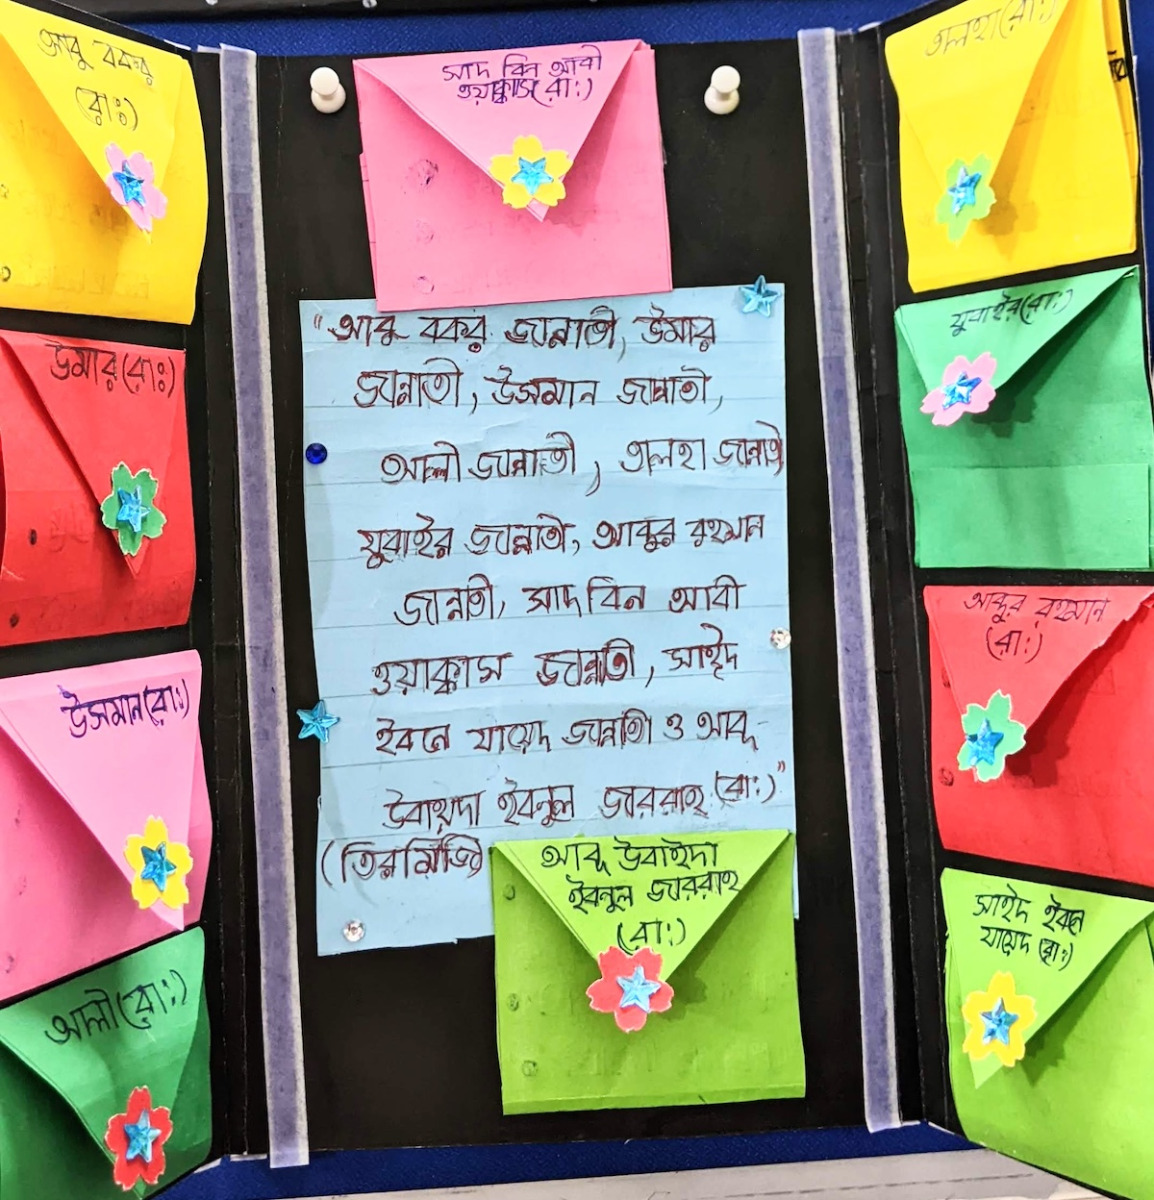 আবু বকর
(রাঃ)
উমার(রাঃ)
উসমান(রা:)
আলী(রা:)
সাদ বিন আবী
ওয়াক্কাস(রা:)
"আবু বকর জান্নাতী, উমার
জান্নাতী, উসমান জান্নাতী,
আলী জান্নাতী, তালহা জান্নাতী
যুবাইর জান্নাতী, আব্দুর রহমান
জান্নাতী, সাদ বিন আবী
ওয়াক্কাস জান্নাতী, সাইদ
ইবনে যায়েদ জান্নাতী ও আবু
উবায়দা ইবনুল জাররাহ (রা:)"
(তিরমিজি)
আবু উবাইদা
ইবনুল জাররাহ
(রা:)
তালহা(রা:)
যুবাইর(রা:)
আব্দুর রহমান
(রা:)
সাইদ ইবনে
যায়েদ (রা:)